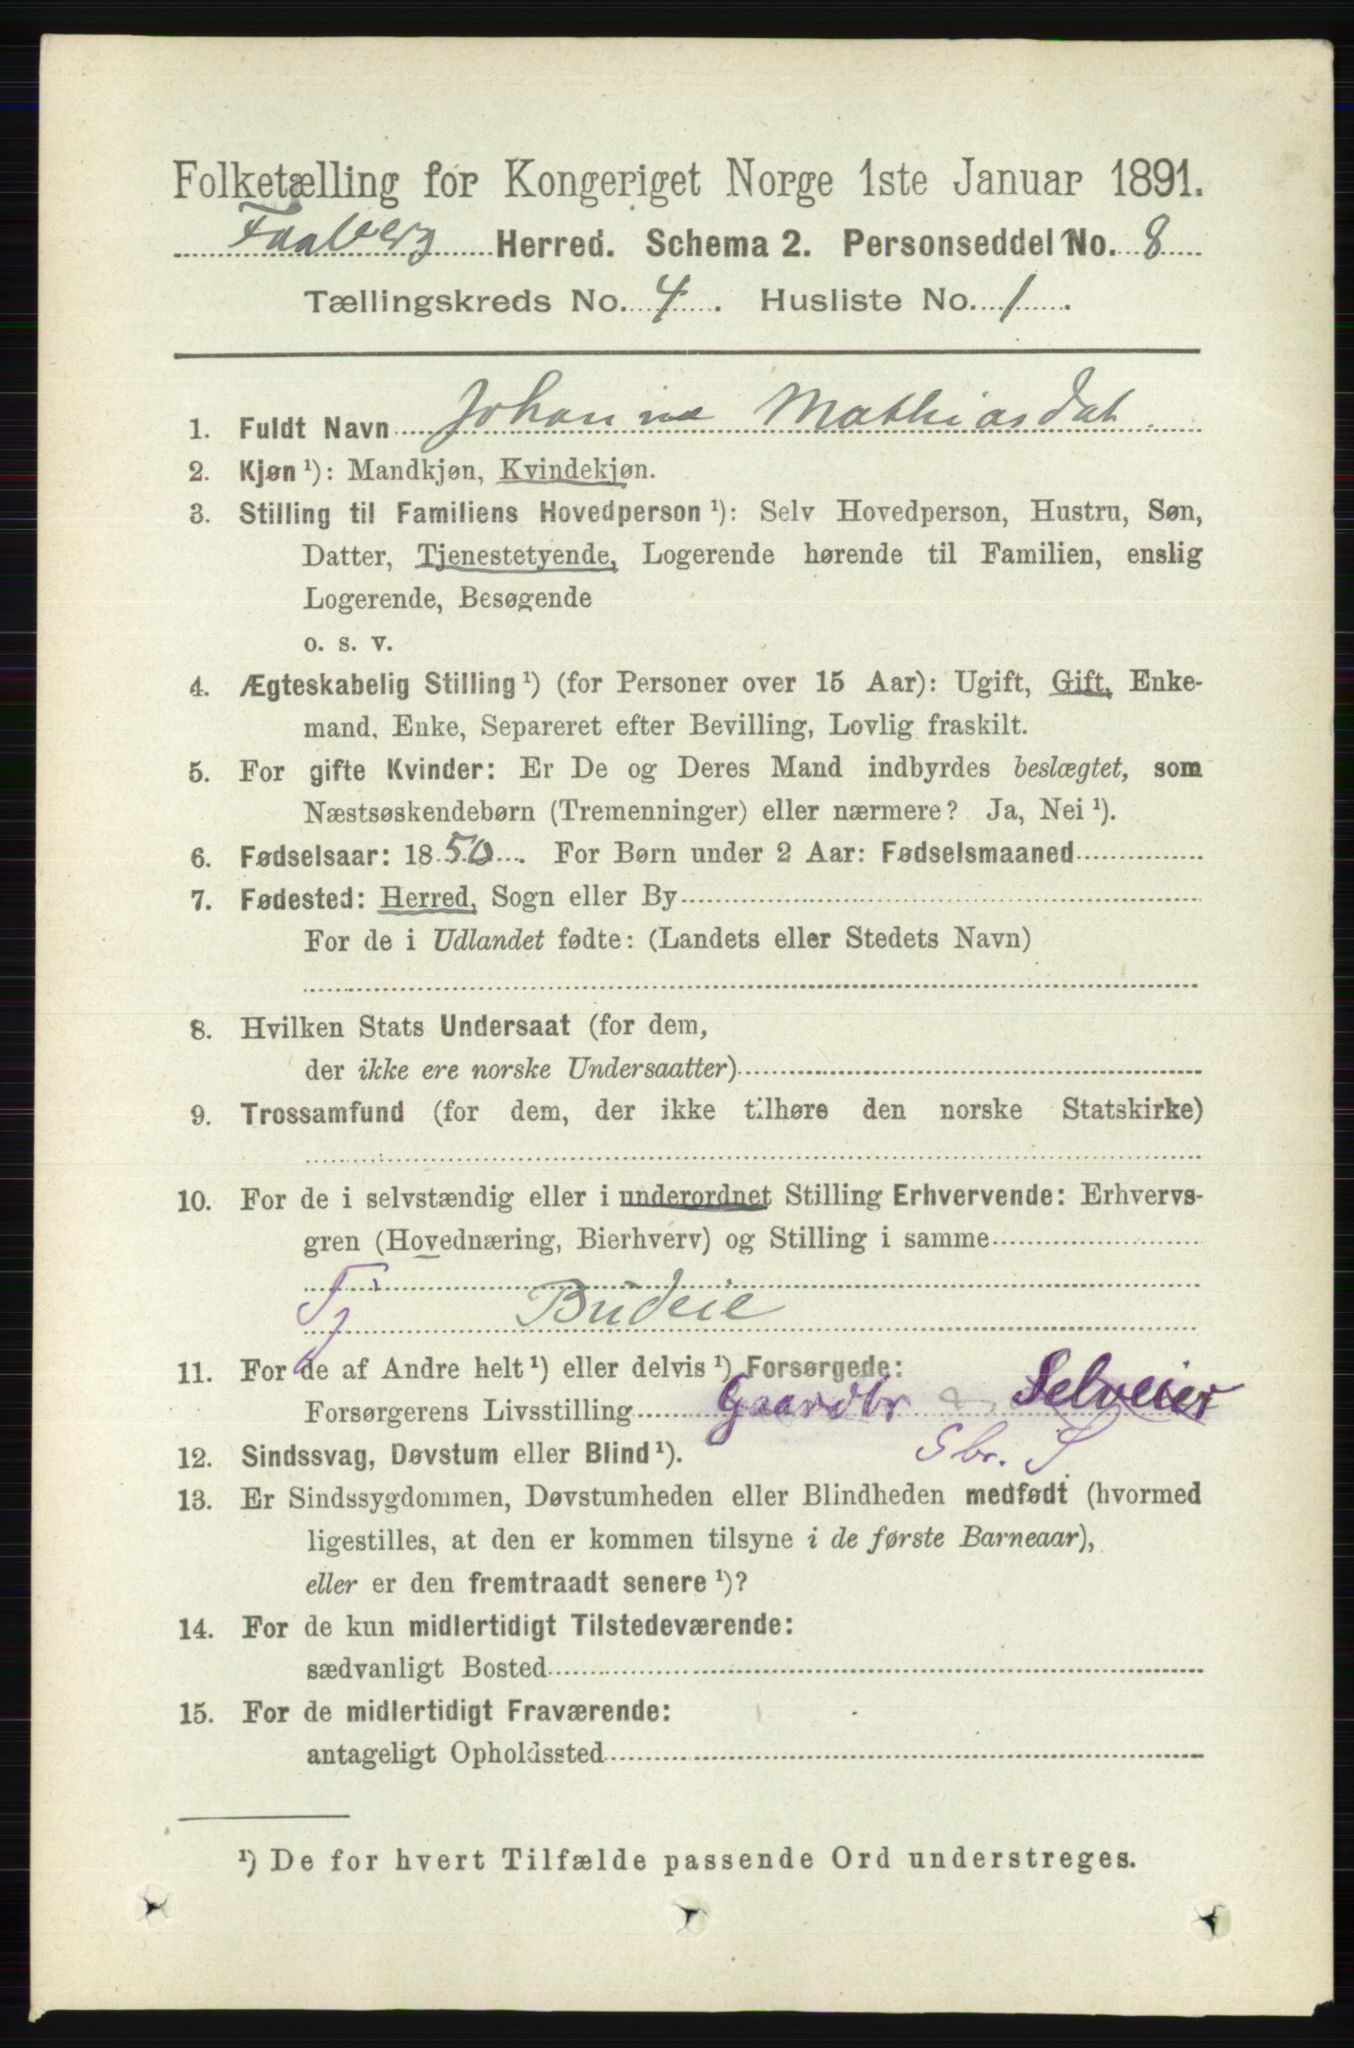 Folketælling for Kongeriget Norge 1ste Januar 1891.
Faaberg Herred. Schema 2. Personseddel No. 8
Tællingskreds No. 4. Husliste No. 1.
1. Fuldt Navn Johanne Mathiasdat.
2. Kjøn ¹): Mandkjøn, Kvindekjøn.
3. Stilling til Familiens Hovedperson ¹): Selv Hovedperson, Hustru, Søn,
Datter, Tjenestetyende, Logerende hørende til Familien, enslig
Logerende, Besøgende
o. s. v.
4. Ægteskabelig Stilling ¹) (for Personer over 15 Aar): Ugift, Gift, Enke-
mand, Enke, Separeret efter Bevilling, Lovlig fraskilt.
5. For gifte Kvinder: Er De og Deres Mand indbyrdes beslægtet, som
Næstsøskendebørn (Tremenninger) eller nærmere? Ja, Nei ¹).
6. Fødselsaar: 1850. For Børn under 2 Aar: Fødselsmaaned
7. Fødested: Herred, Sogn eller By
For de i Udlandet fødte: (Landets eller Stedets Navn)
8. Hvilken Stats Undersaat (for dem,
der ikke ere norske Undersaatter)
9. Trossamfund (for dem, der ikke tilhøre den norske Statskirke)
10. For de i selvstændig eller i underordnet Stilling Erhvervende: Erhvervs-
gren (Hovednæring, Bierhverv) og Stilling i samme
Tj Budeie
11. For de af Andre helt ¹) eller delvis ¹) Forsørgede:
Forsørgerens Livsstilling Gaardbr Selveier
Gbr. S
12. Sindssvag, Døvstum eller Blind ¹).
13. Er Sindssygdommen, Døvstumheden eller Blindheden medfødt (hvormed
ligestilles, at den er kommen tilsyne i de første Barneaar),
eller er den fremtraadt senere ¹)?
14. For de kun midlertidigt Tilstedeværende:
sædvanligt Bosted
15. For de midlertidigt Fraværende:
antageligt Opholdssted
¹) De for hvert Tilfælde passende Ord understreges.